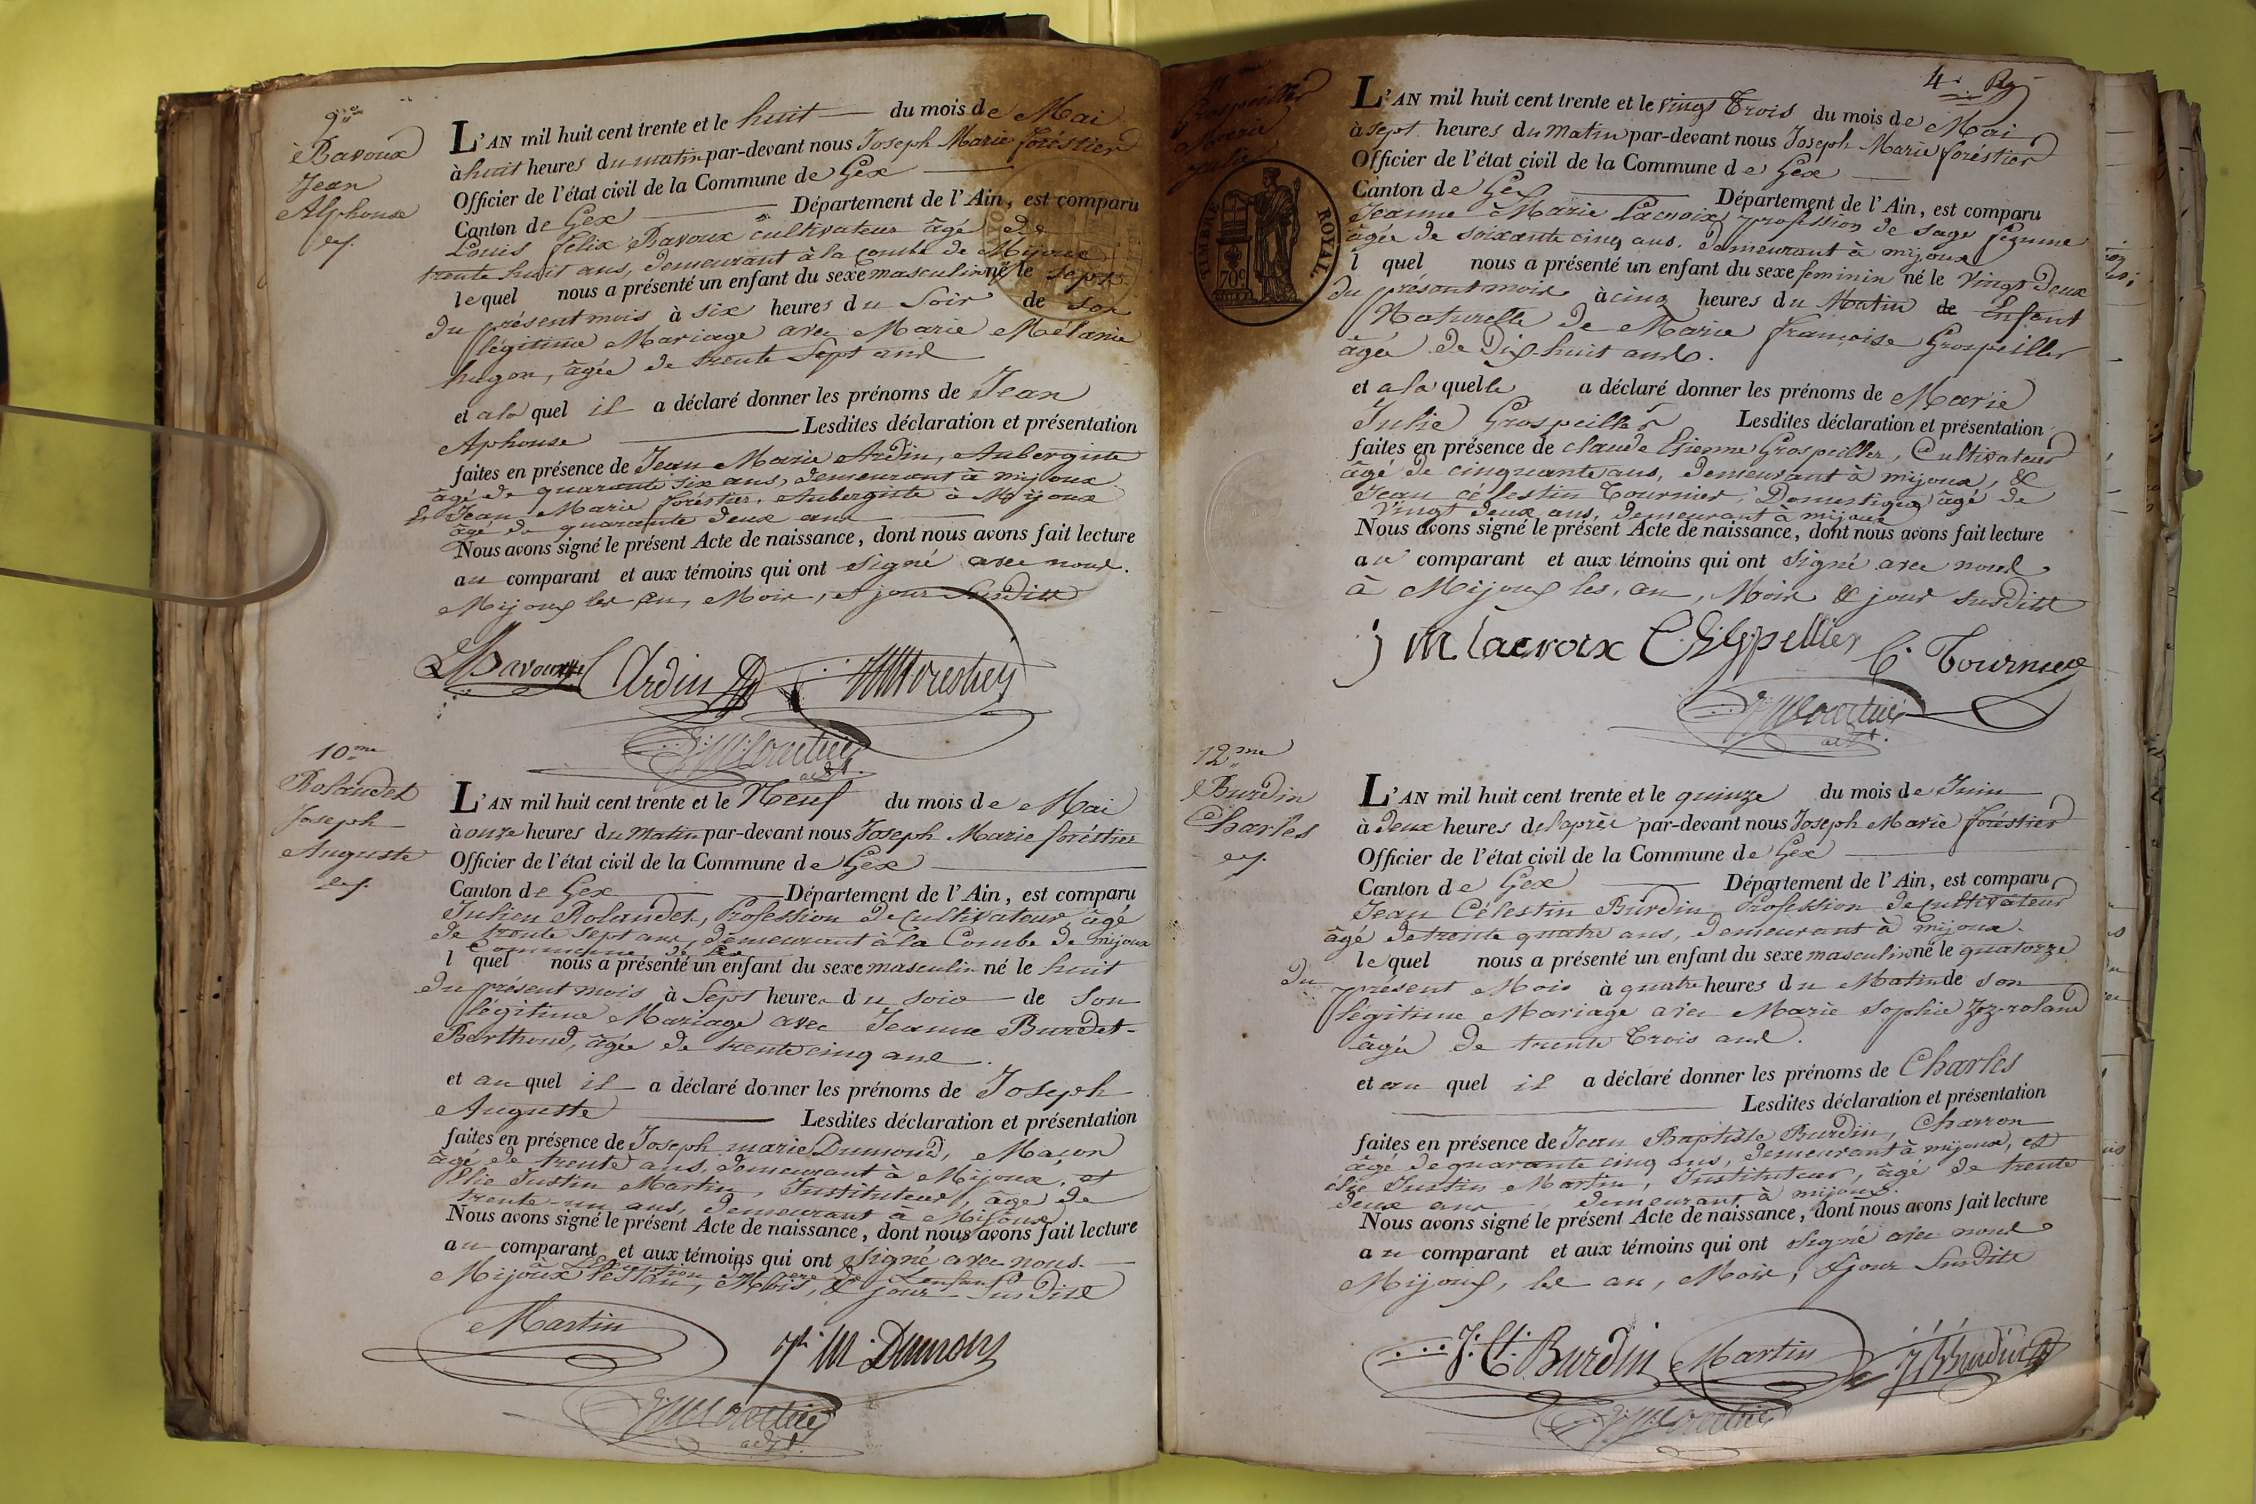 9me
Bavoux
Jean
Alphonse
L'AN mil huit cent trente et le huit du mois de Mai
à huit heures du matin par-devant nous Joseph Marie foréstier
Officier de l'état civil de la Commune de Gex
Canton de Gex Département de l'Ain, est comparu
Louis félix Bavoux cultivateur âgé de
trente huit ans, demeurant à la combe de Mijoux
lequel nous a présenté un enfant du sexe masculin né le sept
du présent mois à six heures du Soir de son
légitime Mariage avec Marie Mélanie
hugon, âgée de trente Sept ans
et a la quel il a déclaré donner les prénoms de Jean
Aphonse Lesdites déclaration et présentation
faites en présence de Jean Marie Ardin, Aubergiste
âgé de quarante six ans, demeurant à mijoux
& Jean Marie foréstier, Aubergiste à Mijoux
âgé de quarante deux ans
Nous avons signé le présent Acte de naissance, dont nous avons fait lecture
au comparant et aux témoins qui ont signé avec nous.
Mijoux les an, Mois, & jour Susditt
Bavoux Ardin
10me
Rolandet
Joseph
Auguste
L'AN mil huit cent trente et le Neuf du mois de Mai
à onze heures du Matin par-devant nous Joseph Marie foréstier
Officier de l'état civil de la Commune de Gex
Canton de Gex Département de l'Ain, est comparu
Julien Rolandet, Profession de Cultivateur, âgé
de trente sept ans, demeurant à la Combe de mijoux
Commune de Gex
l quel nous a présenté un enfant du sexe masculin né le huit
du présent mois à Sept heures du soir de Son
légitime Mariage avec Jeanne Burdet-
Berthoud, âgée de trente cinq ans.
et au quel il a déclaré donner les prénoms de Joseph
Auguste Lesdites déclaration et présentation
faites en présence de Joseph marie Dumond, Maçon
âgé de trente ans, demeurant à Mijoux, et
Elie Justin Martin, Instituteur, âgé de
trente-un ans, demeurant à Mijoux
Nous avons signé le présent Acte de naissance, dont nous avons fait lecture
au comparant et aux témoins qui ont signé avec nous.
à L'exception du père de L'enfant
Mijoux les an, Mois, & jour Susditt
Martin M. Dumond
4. Rg
11me
Grospeiller
Marie
Julie
TIMBRE ROYAL
70c
L'AN mil huit cent trente et le vingt Trois du mois de Mai
à sept heures du Matin par-devant nous Joseph Marie foréstier
Officier de l'état civil de la Commune de Gex
Canton de Gex Département de l'Ain, est comparu
Jeanne Marie Lacroix, profession de sage femme
âgée de soixante cinq ans, demeurant à mijoux
l quel nous a présenté un enfant du sexe feminin né le vingt Deux
du présent mois à cinq heures du Matin de Enfant
Naturelle de Marie françoise Grospeiller
âgée de Dix-huit ans.
et a la quelle a déclaré donner les prénoms de Marie
Julie Grospeiller Lesdites déclaration et présentation
faites en présence de claude Etienne Grospeiller, Cultivateur
âgé de cinquante ans, demeurant à mijoux, &
Jean célestin Tournier, Domestique âgé de
vingt deux ans, demeurant à mijoux
Nous avons signé le présent Acte de naissance, dont nous avons fait lecture
au comparant et aux témoins qui ont signé avec nous
à Mijoux les, an, Mois & jour susditt
j m lacroix C. Tournier
12me
Burdin
Charles
L'AN mil huit cent trente et le quinze du mois de Juin
à deux heures de l'après par-devant nous Joseph Marie foréstier
Officier de l'état civil de la Commune de Gex
Canton de Gex Département de l'Ain, est comparu
Jean Célestin Burdin, Profession de cultivateur
âgé de trente quatre ans, demeurant à mijoux.
lequel nous a présenté un enfant du sexe masculin né le quatorze
du présent Mois à quatre heures du Matin de son
légitime Mariage avec Marie Sophie
âgée de trente Trois ans.
et au quel il a déclaré donner les prénoms de Charles
Lesdites déclaration et présentation
faites en présence de Jean Baptiste Burdin, Charron
âgé de quarante cinq ans, demeurant à mijoux, et
élie Justin Martin, Instituteur, âgé de trente
deux ans, demeurant à mijoux.
Nous avons signé le présent Acte de naissance, dont nous avons fait lecture
au comparant et aux témoins qui ont signé avec nous
Mijoux, les an, Mois, & jour Susditt
J. Ct. Burdin Martin J B Burdin